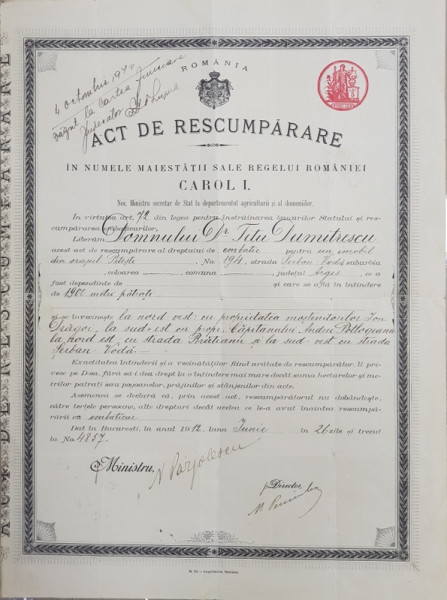 ROMÂNIA
4 octombrie 19
văzut la Cartea funciara
judecător
ACT DE RESCUMPĂRARE
ÎN NUMELE MAIESTĂȚII SALE REGELUI ROMÂNIEI
CAROL I.
Noi, Ministru secretar de Stat la departamentul agriculturii și al domeniilor,
In virtutea art. 72 din legea pentru înstrăinarea bunurilor Statului și res-
cumpărarea embaticurilor,
Liberăm Domnului Dr Titu Dumitrescu
acest act de rescumpărare al dreptului de embatic pentru un imobil
din orașul Pitești No. 194, strada Șerban Vodă suburbia
, coloarea , comuna județul Argeș ce a
fost dependinte de și care se află în întindere
de 1900 metri pătrați
și se învecinește la nord vest cu proprietatea moștenitorilor Ion
Drăgoi, la sud-est cu prop. Căpitanului Andrei
la nord est cu strada Brătianu și la sud-vest cu strada
Șerban Vodă
Exactitatea întinderii și a vecinătăților fiind arătate de rescumpărător, îl pri-
vesc pe D-sa, fără să-i dea drept la o întindere mai mare decât suma hectarelor și me-
trilor patrați sau pogoanelor, prăjinilor și stânjinilor din acte.
Asemenea se declară că, prin acest act, rescumpărătorul nu dobândește,
către terțele persoane, alte drepturi decât acelea ce le-a avut înaintea rescumpă-
rării ca embaticar
Dat în București, la anul 1912 luna Iunie în 26 zile și trecut
la No 4857.
Ministru,
p. Director,